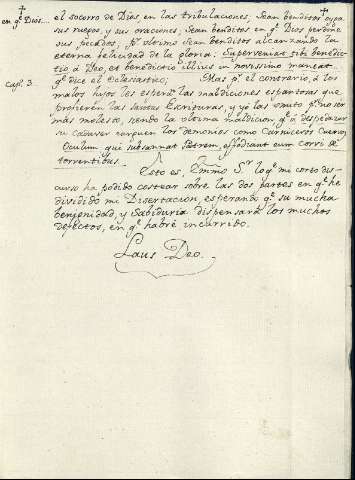 en qᵉ Dios....
el socorro de Dios en las tribulaciones, Sean benditos oyga
sus ruegos, y sus oraciones, Sean benditos en qᵉ Dios perdone
sus pecados, pʳ ultimo Sean benditos alcanzando la
eterna felicidad de la gloria: Superveniat tibi benedic-
tio a Deo, et benedictio illius in novissimo maneat
cap. 3
qᵉ dice el Eclesiastico; Mas pʳ el contrario, á los
malos hijos les esperan las maldiciones espantosas que
profieren las santas Escrituras, y yo las omito pʳ no ser
mas molesto, siendo la ultima maldicion qᵉ á despedazar
su cadaver carguen los demonios como Carniceros Cuervos
Oculum qui subsannat Patrem, effodiant eum corvi de
torrentibus.
Esto es, Emmo Sʳ lo qᵉ mi corto dis-
curso ha podido costear sobre las dos partes en qᵉ he
dividido mi Disertacion, esperando qᵉ su mucha
benignidad, y Sabiduria dispensará los muchos
defectos, en qᵉ habré incurrido.
Laus Deo.